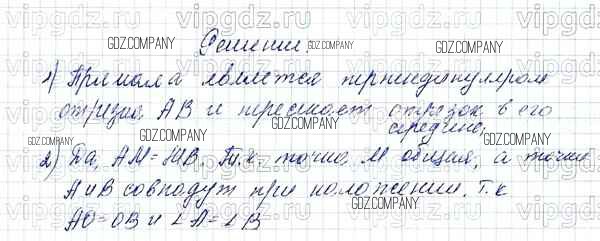 vipgdz.ru vipgdz.ru vipgdz.ru vipgdz.ru
GDZ.COMPANY GDZ.COMPANY
Решение
GDZ.COMPANY
1) Прямая является перпендикуляром
отрезка АВ и пересекает отрезок в его
середине,
GDZ.COMPANY GDZ.COMPANY GDZ.COMPANY GDZ.COMPANY
2) Да, АМ = МВ. Т.к. точка М общая, а точки
А и В совпадут при наложении, т.к
GDZ.COMPANY GDZ.COMPANY
АО = ОВ и ∠А = ∠В